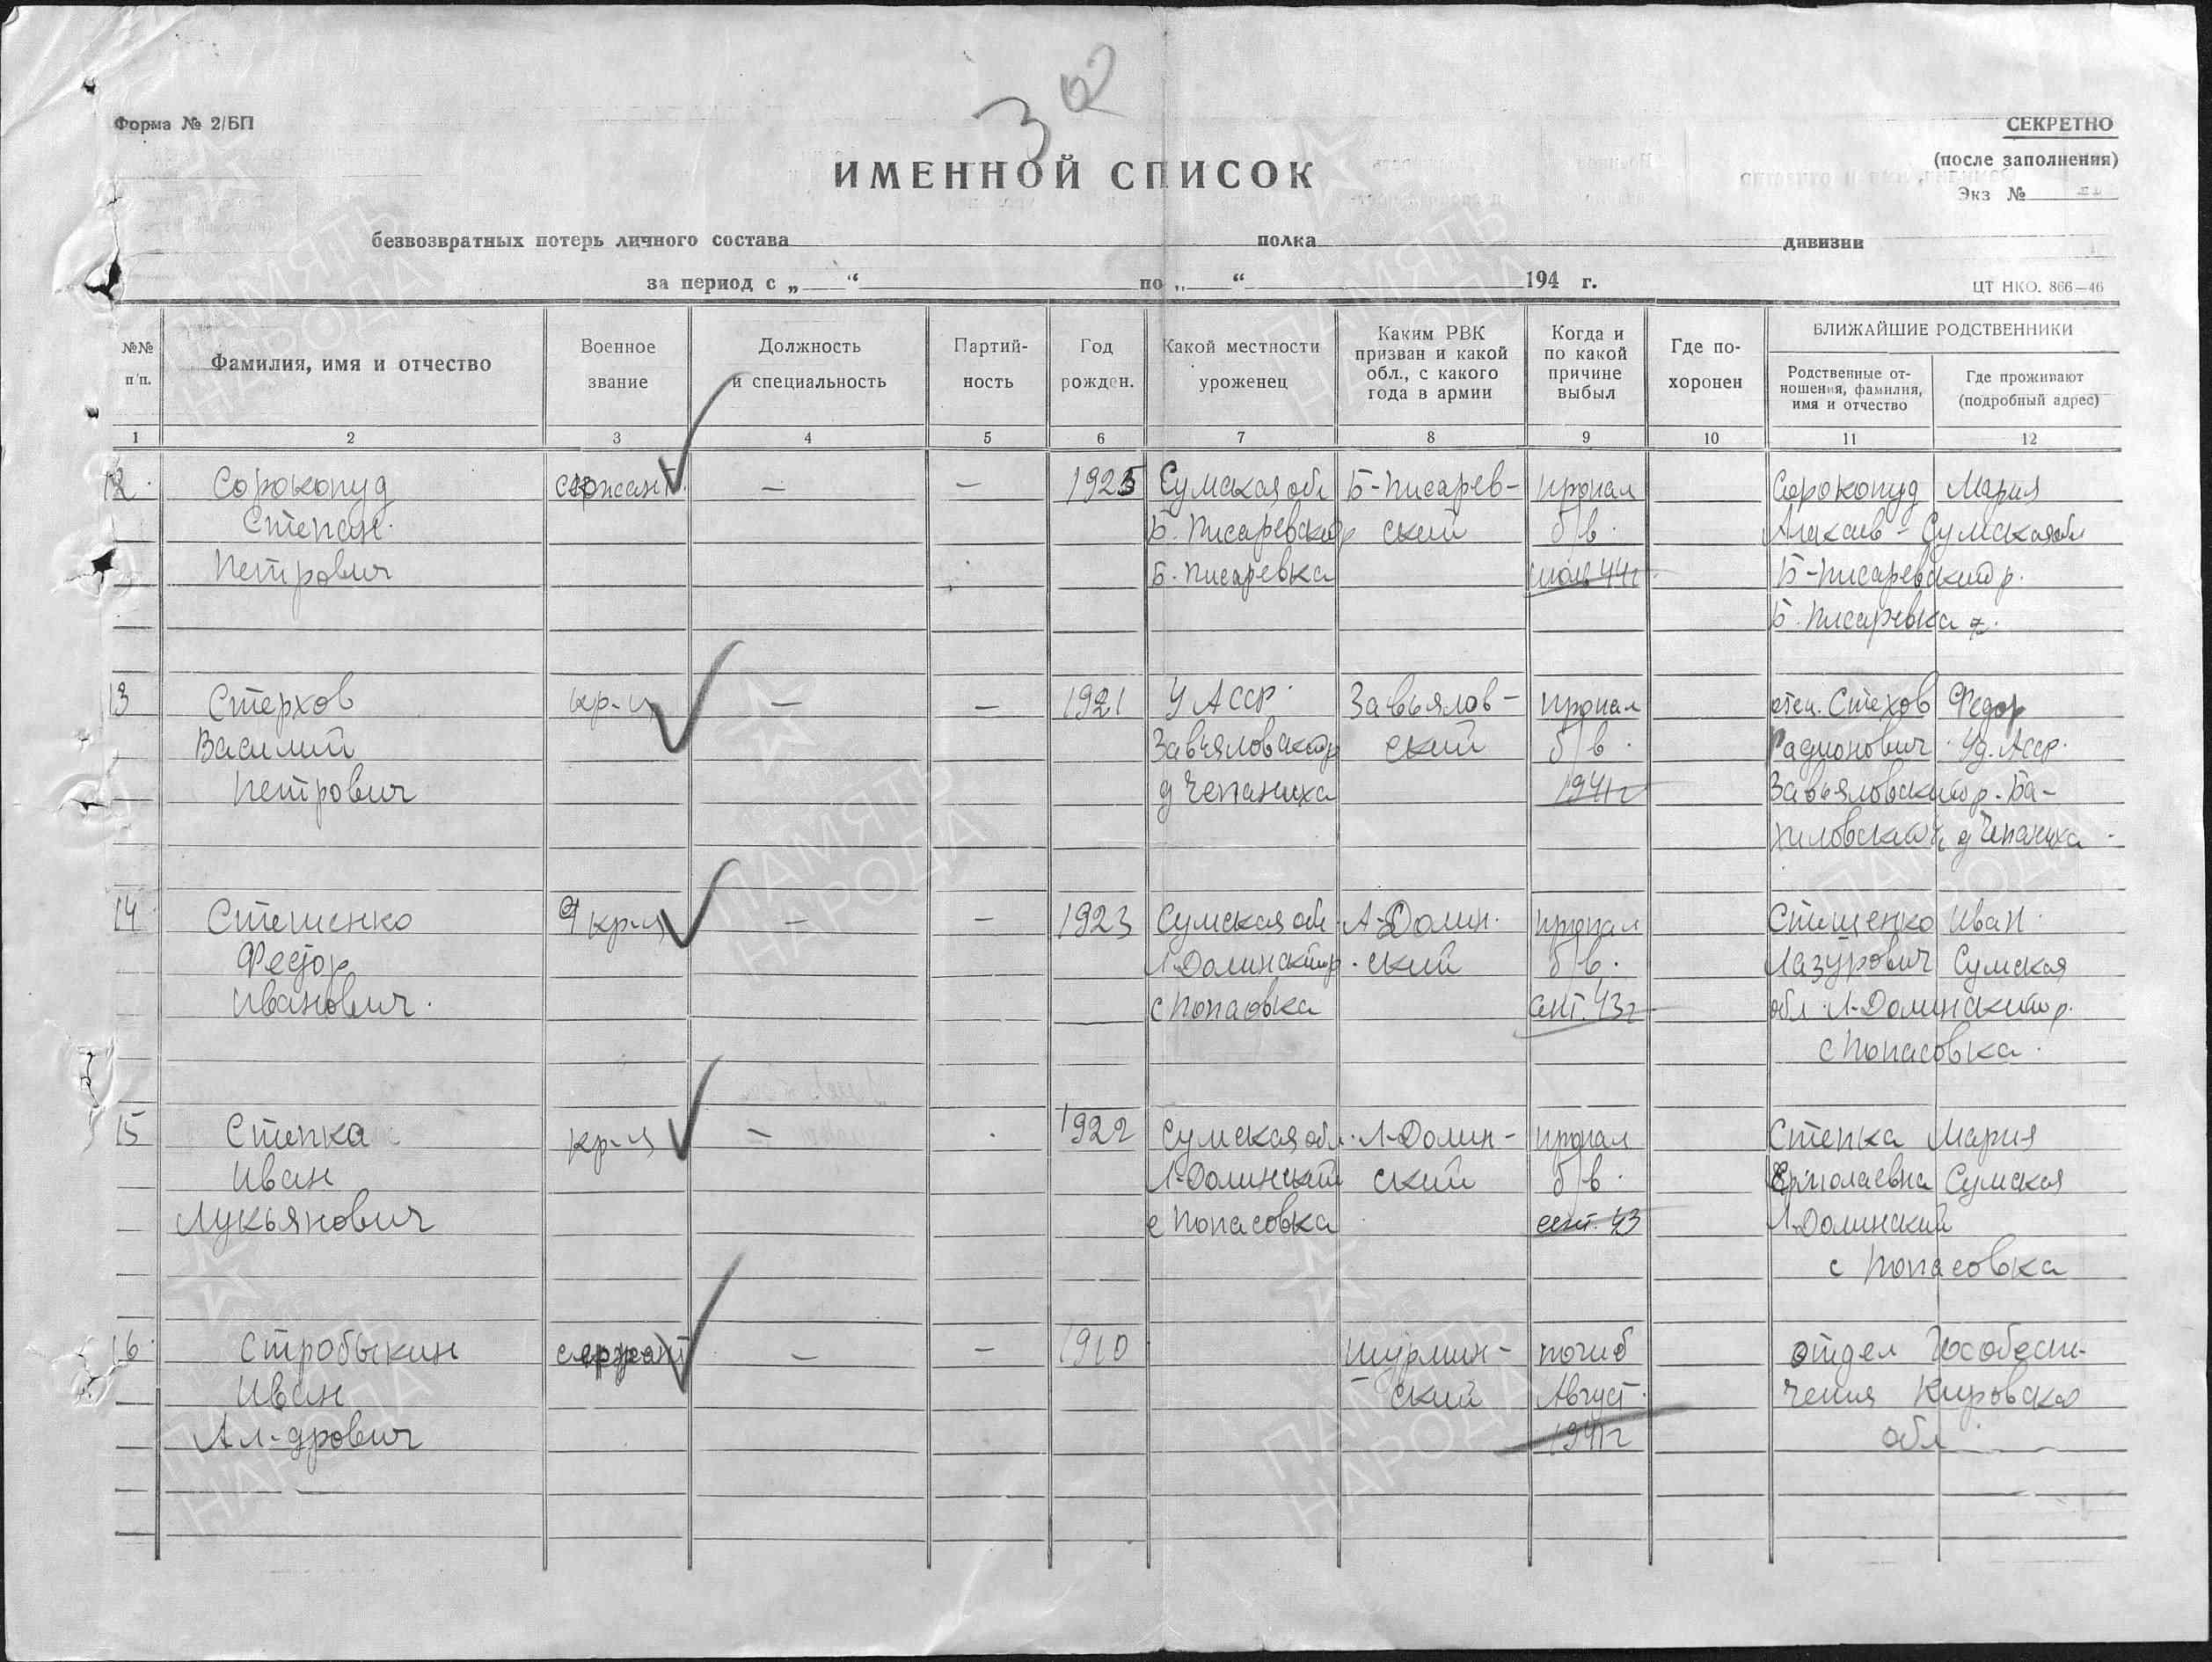 32
Форма № 2/БП
СЕКРЕТНО
(после заполнения)
Экз №
ИМЕННОЙ СПИСОК
безвозвратных потерь личного состава полка дивизии
за период с „ “ по „ “ 194 г.
ЦТ НКО. 866—46
№№ п/п.
Фамилия, имя и отчество
Военное звание
Должность и специальность
Партий-
ность
Год рожден.
Какой местности уроженец
Каким РВК
призван и какой
обл., с какого
года в армии
Когда и
по какой
причине
выбыл
Где по-
хоронен
БЛИЖАЙШИЕ РОДСТВЕННИКИ
Родственные от-
ношения, фамилия,
имя и отчество
Где проживают
(подробный адрес)
1 2 3 4 5 6 7 8 9 10 11 12
12. Сорокопуд сержант. — — 1925 Сумская обл Б-Писарев- пропал Сорокопуд Мария
Степан. Б. Писаревский р ский б/в. Сумская обл
Петрович Б. Писаревка июль 44г. Б-Писаревский р.
Б. Писаревка
13 Стерхов кр-ц — — 1921 У АССР. Завьялов- пропал отец. Стехов Федор
Василий Завьяловский р ский б/в. Радионович. Уд. Асср.
Петрович д Чепаниха 1941г Завьяловский р. Ба-
д Чепаниха
14. Стешенко кр-ц — — 1923 Сумская обл. Л-Долин. пропал Стешенко Иван.
Федор Л-Долинский р. ский б/в. Лазурович Сумская
Иванович. с Попасовка сент. 43г обл. Л-Долинский р.
с Попасовка.
15 Степка кр-ц — . 1922 Сумская обл. Л-Долин- пропал Степка Мария
Иван Л-Долинский ский б/в. Ермолаевна Сумская
Лукьянович с Попасовка сент. 43 Л-Долинский
с Попасовка
16. Стробыкин сержант — — 1910 Шурмин- погиб отдел Гособеспе-
Иван ский Август. чения Кировская
Ал-дрович 1941г обл
ПАМЯТЬ НАРОДА
ПАМЯТЬ НАРОДА
ПАМЯТЬ НАРОДА
ПАМЯТЬ НАРОДА
ПАМЯТЬ НАРОДА
ПАМЯТЬ НАРОДА